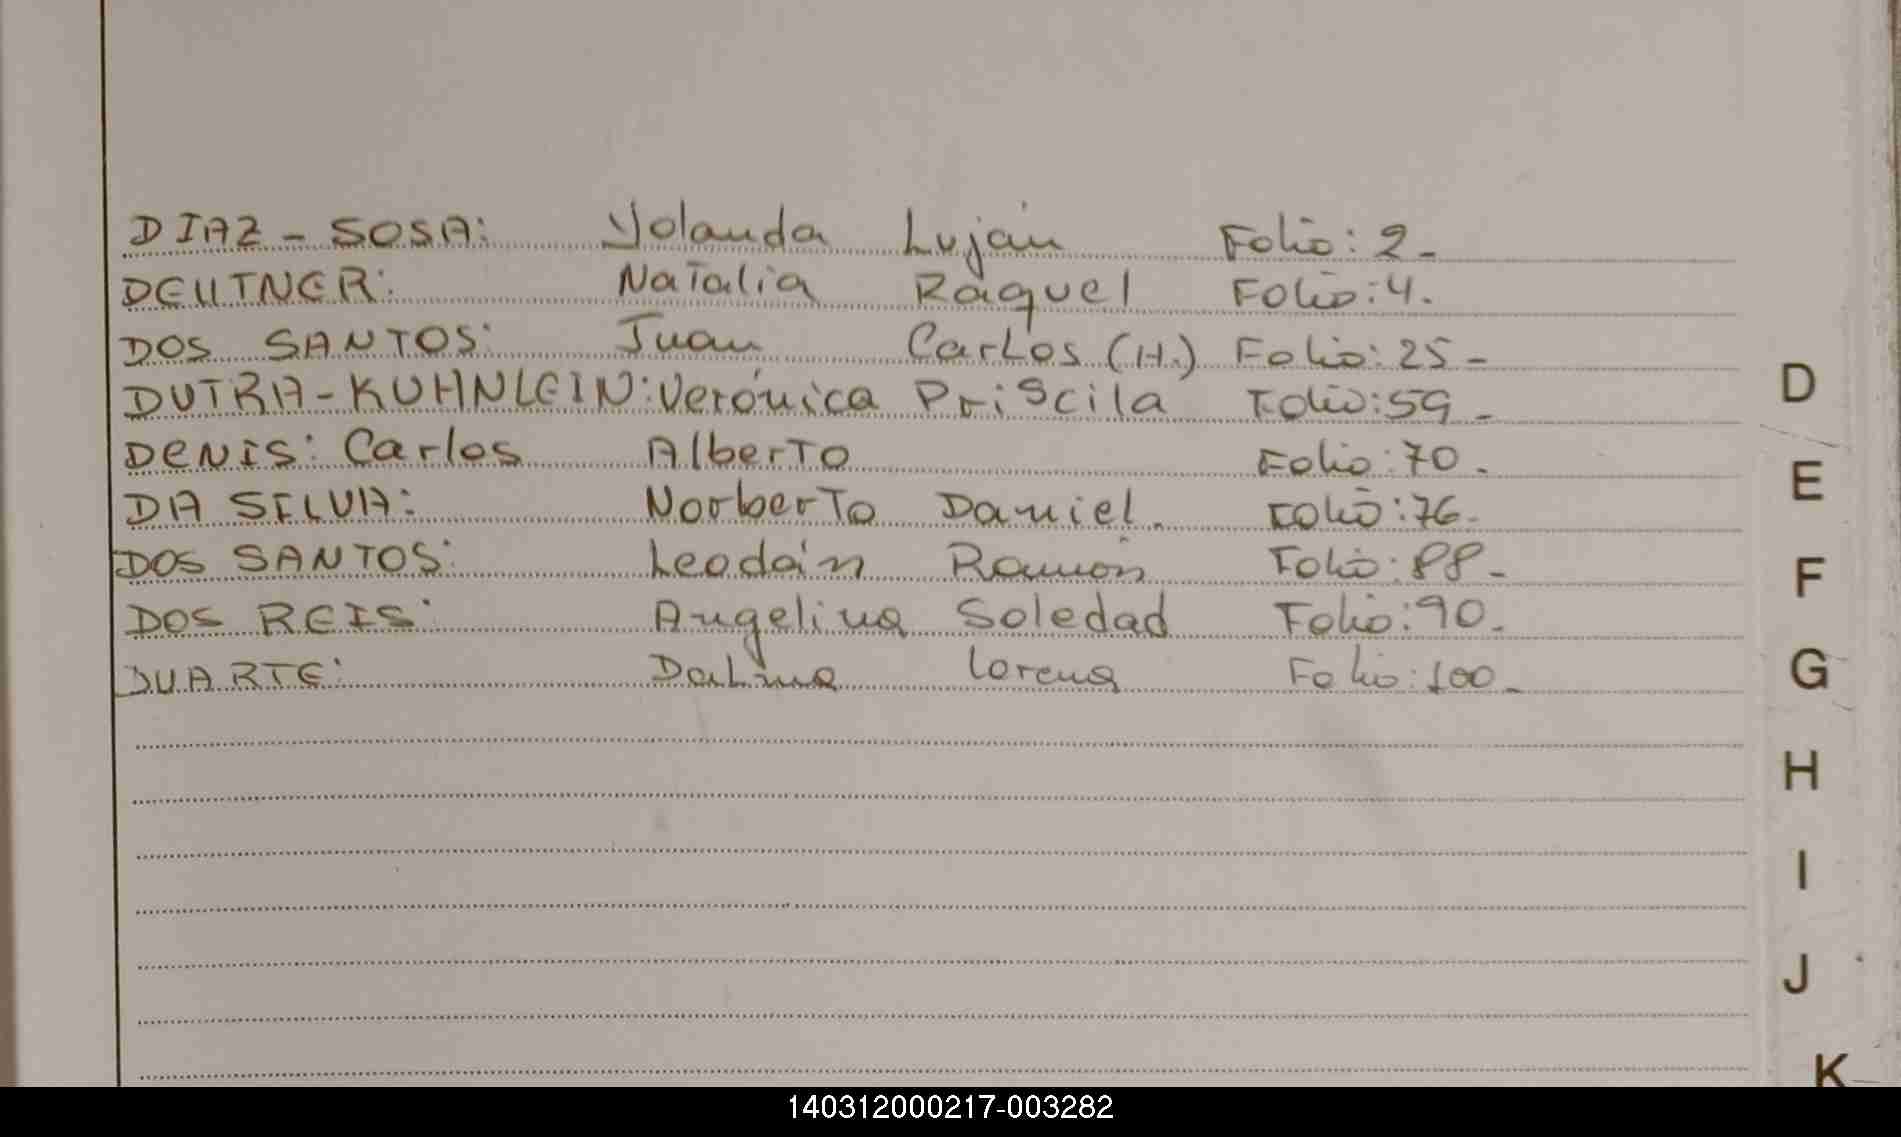 DIAZ - SOSA: Yolanda Luján Folio: 2_
DEUTNER: Natalia Raquel Folio: 4.
DOS SANTOS: Juan Carlos (H.) Folio: 25 -
DUTRA - KUHNLEIN: Verónica Priscila Folio: 59 -
DENIS: Carlos Alberto Folio: 70.
DA SILVA: Norberto Daniel. Folio: 76.
DOS SANTOS: Leodán Ramón Folio: 88 -
DOS REIS: Angelina Soledad Folio: 90.
DUARTE: Dalma Lorena Folio: 100_
D
E
F
G
H
I
J
K
140312000217-003282